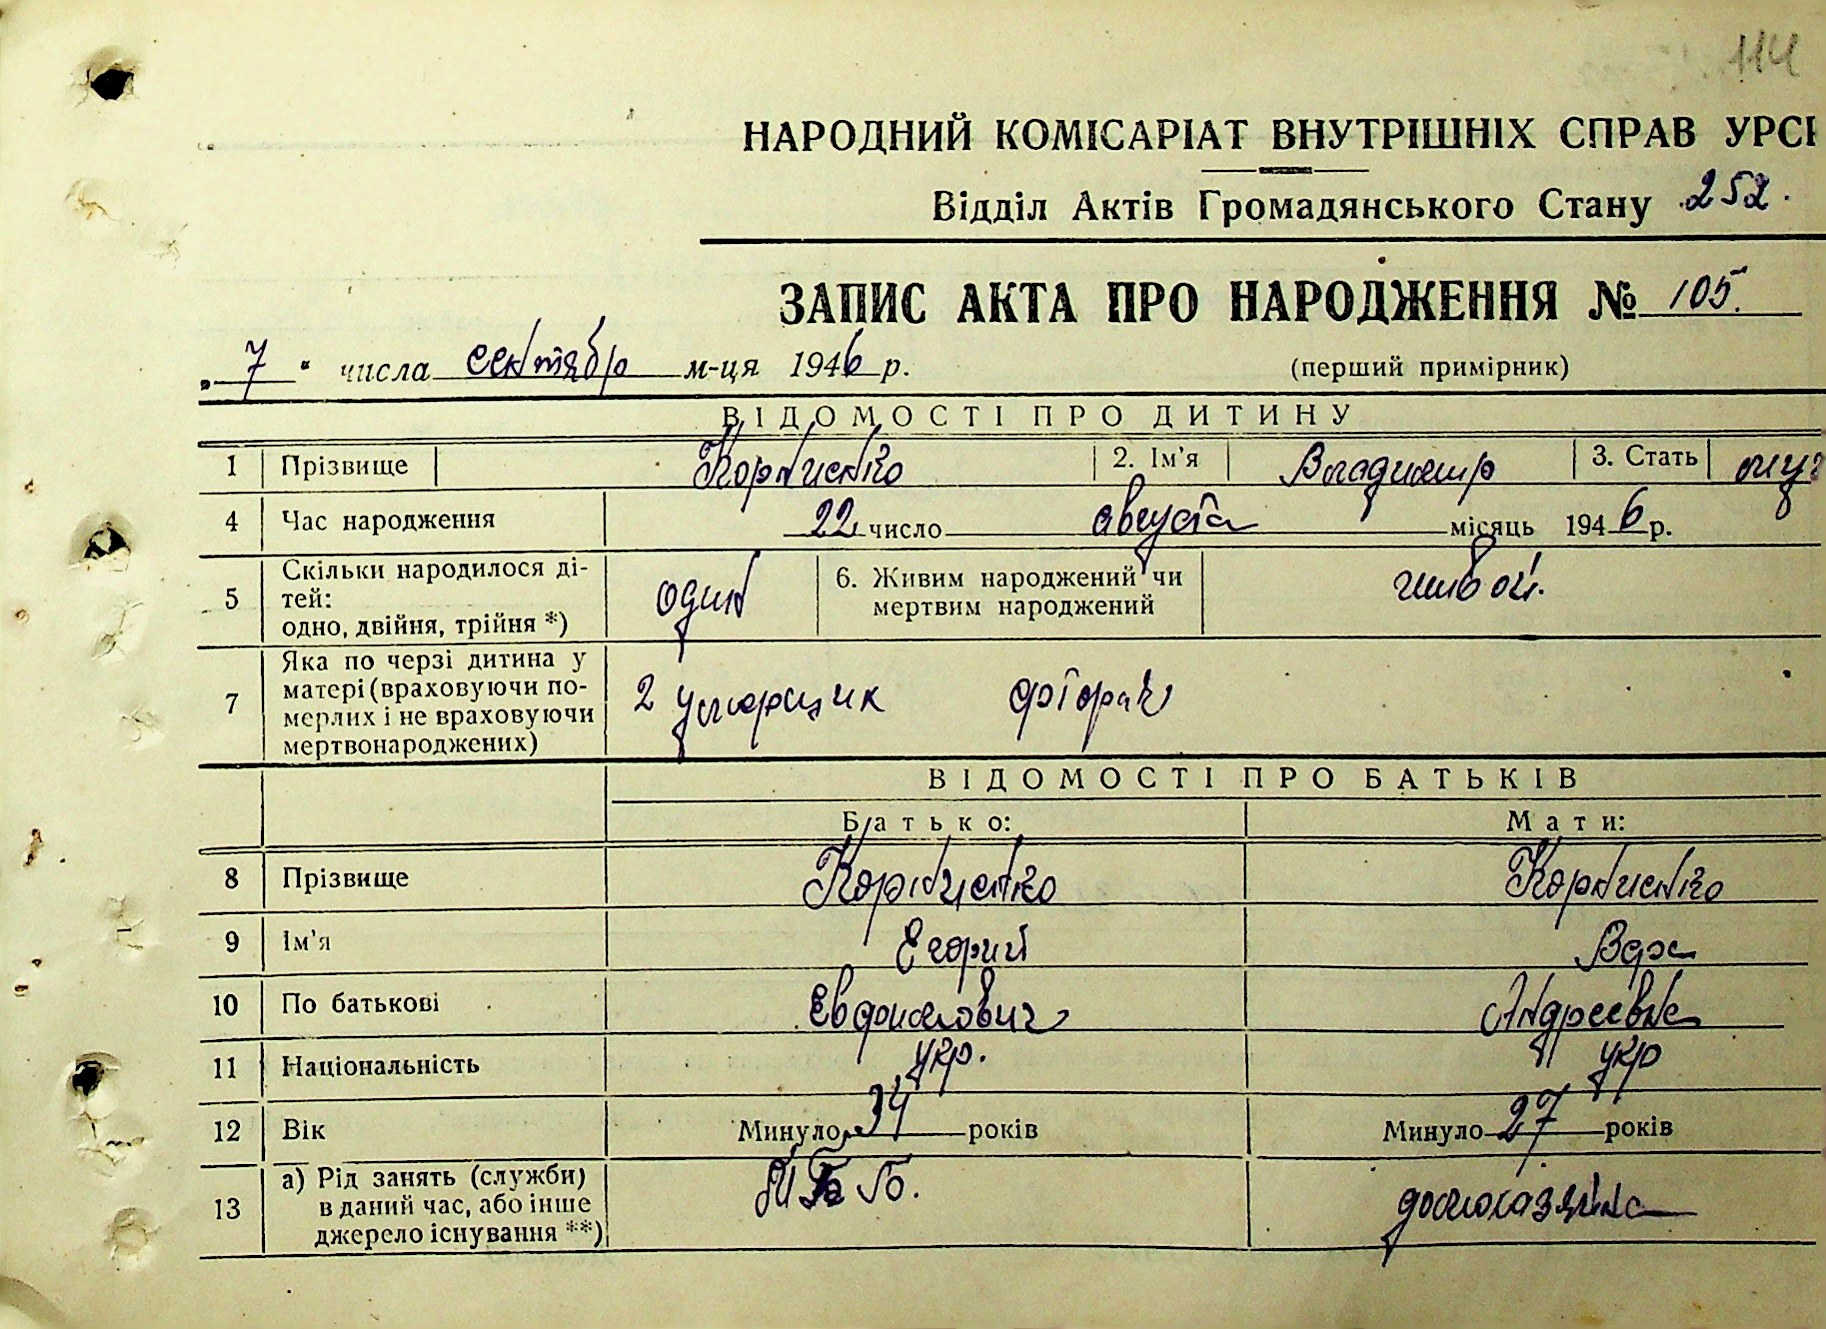 114
НАРОДНИЙ КОМІСАРІАТ ВНУТРІШНІХ СПРАВ УРСР
Відділ Актів Громадянського Стану 252.
ЗАПИС АКТА ПРО НАРОДЖЕННЯ № 105.
„7“ числа сентябр м-ця 1946 р. (перший примірник)
ВІДОМОСТІ ПРО ДИТИНУ
1 Прізвище Корниенко 2. Ім'я Владимир 3. Стать муж
4 Час народження 22 число августа місяць 1946 р.
5 Скільки народилося ді-
тей:
одно, двійня, трійня *) один 6. Живим народжений чи
мертвим народжений живой.
7 Яка по черзі дитина у
матері (враховуючи по-
мерлих і не враховуючи
мертвонароджених) 2
ВІДОМОСТІ ПРО БАТЬКІВ
Батько: Мати:
8 Прізвище Корниенко Корниенко
9 Ім'я Егорий Вера
10 По батькові Евдокимович Андреевна
11 Національність укр. укр
12 Вік Минуло 34 років Минуло 27 років
13 а) Рід занять (служби)
в даний час, або інше
джерело існування **) домохазяйка